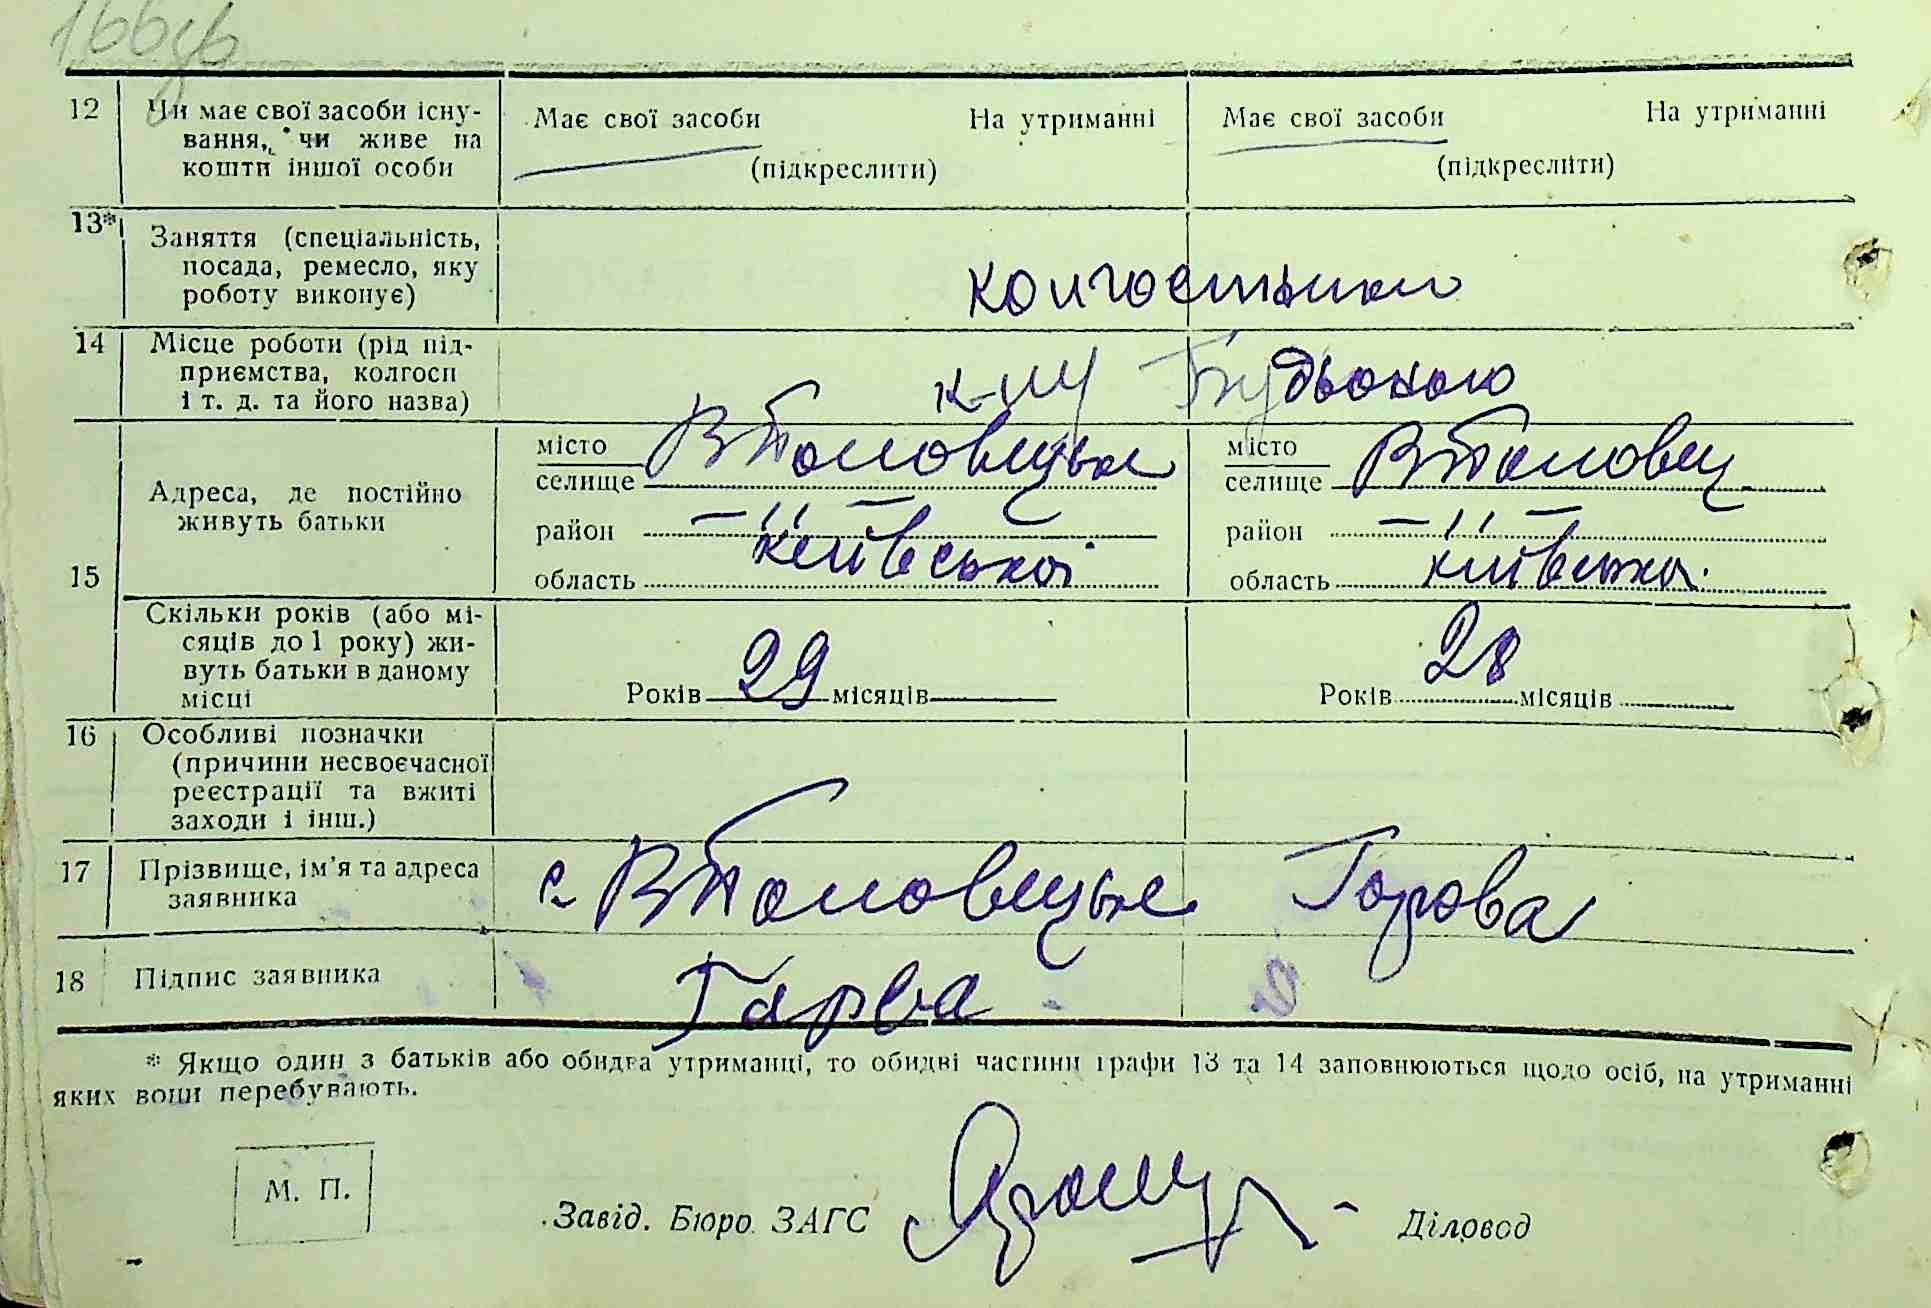 166зв
12 Чи має свої засоби існу-
вання, чи живе на
кошти іншої особи
Має свої засоби На утриманні
(підкреслити)
Має свої засоби На утриманні
(підкреслити)
13* Заняття (спеціальність,
посада, ремесло, яку
роботу виконує)
колгоспники
14 Місце роботи (рід під-
приємства, колгосп
і т. д. та його назва)
к-пу Будьоного
15 Адреса, де постійно
живуть батьки
місто
селище ВПоловецьке
район — " —
область київської
місто
селище ВПоловец
район — " —
область київської
Скільки років (або мі-
сяців до 1 року) жи-
вуть батьки в даному
місці
Років 29 місяців
Років 28 місяців
16 Особливі позначки
(причини несвоєчасної
реєстрації та вжиті
заходи і інш.)
17 Прізвище, ім'я та адреса
заявника
с. ВПоловецьке Горова
18 Підпис заявника
Гарва
* Якщо один з батьків або обидва утриманці, то обидві частини графи 13 та 14 заповнюються щодо осіб, на утриманні
яких вони перебувають.
М. П.
Завід. Бюро ЗАГС
Діловод